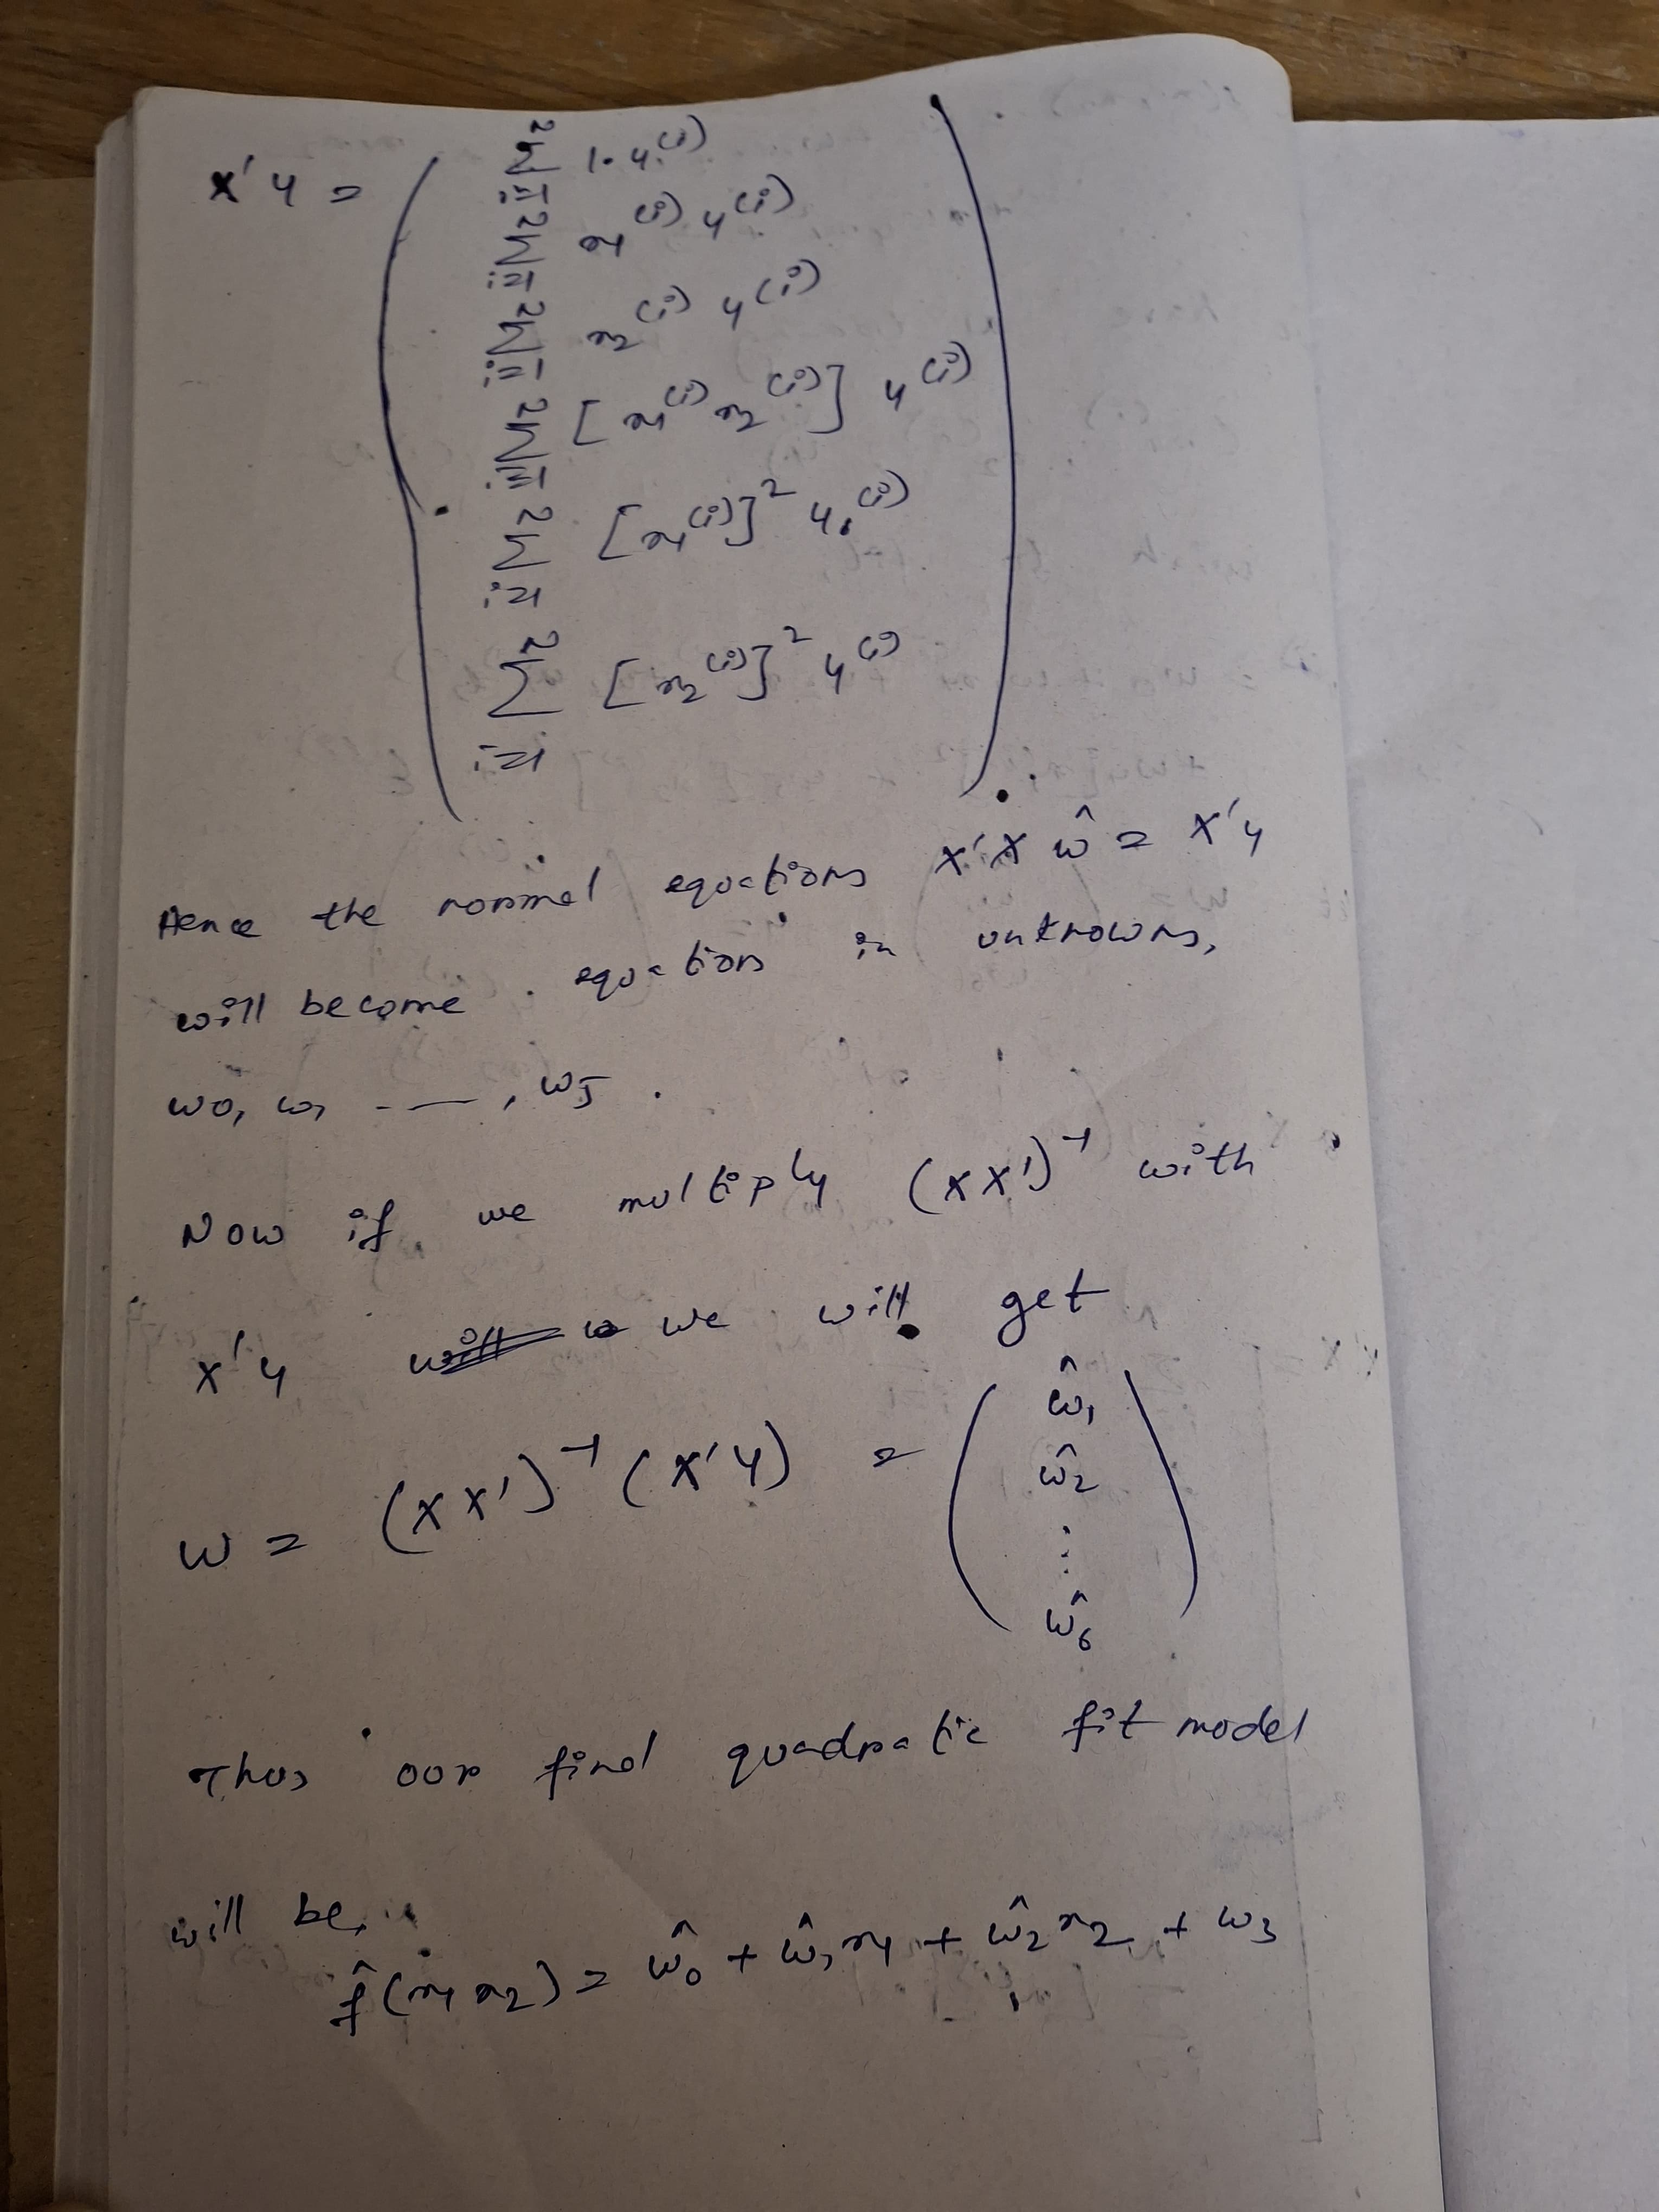 x'y = ( Σ_{i=1}^{n} 1·y^{(i)}
Σ_{i=1}^{n} x1^{(i)} y^{(i)}
Σ_{i=1}^{n} x2^{(i)} y^{(i)}
Σ_{i=1}^{n} [x1^{(i)} x2^{(i)}] y^{(i)}
Σ_{i=1}^{n} [x1^{(i)}]² y^{(i)}
Σ_{i=1}^{n} [x2^{(i)}]² y^{(i)} )
Hence the normal equations x'x ŵ = x'y
will become equations in unknowns,
w0, w1 - — , w5 .
Now if we multiply (xx')⁻¹ with
x'y we will get
w = (xx')⁻¹ (x'y) = ( ŵ1
ŵ2
⋮
ŵ6 )
Thus our final quadratic fit model
will be,
f̂(x1 x2) = ŵ0 + ŵ1 x1 + ŵ2 x2 + w3